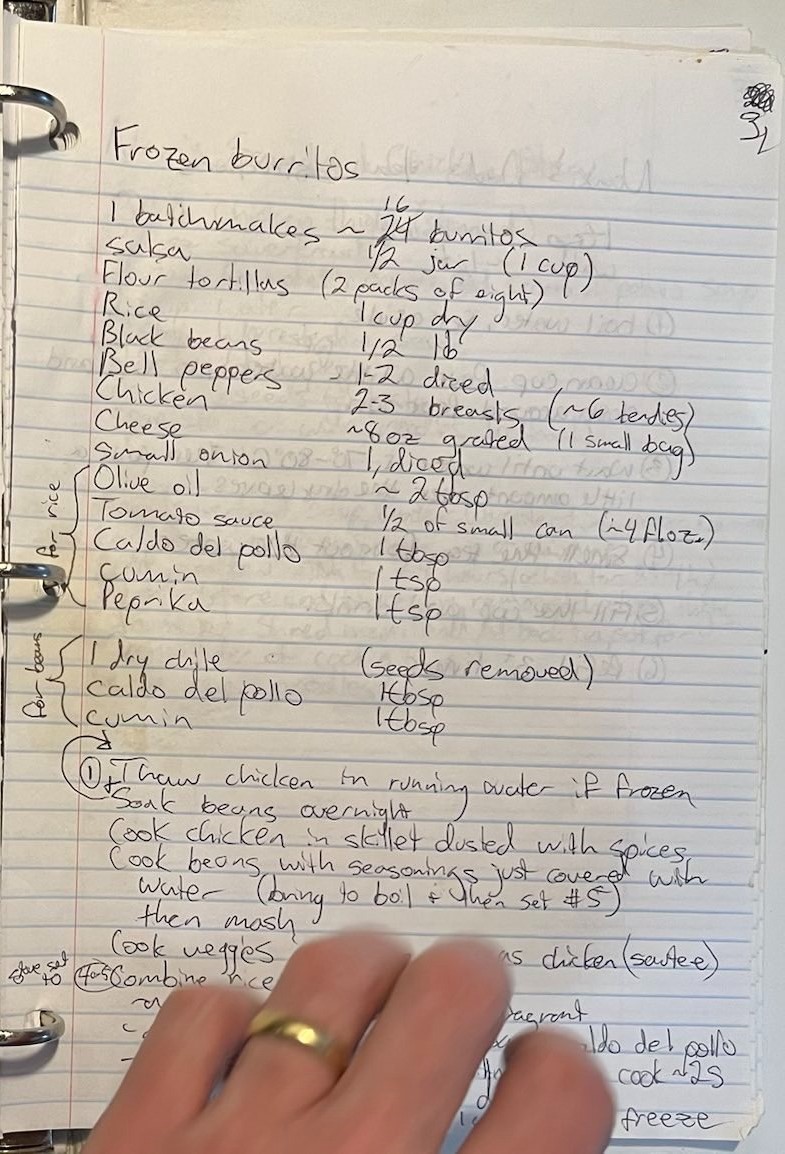 31
Frozen burritos
1 batch makes ~ 16 burritos
Salsa 1/2 jar (1 cup)
Flour tortillas (2 packs of eight)
Rice 1 cup dry
Black beans 1/2 lb
Bell peppers - 1-2 diced
Chicken 2-3 breasts (~6 tendies)
Cheese ~8 oz grated (1 small bag)
Small onion 1, diced
for rice
Olive oil ~ 2 tbsp
Tomato sauce 1/2 of small can (~4 fl oz.)
Caldo del pollo 1 tbsp
cumin 1 tsp
Peprika 1 tsp
for beans
1 dry chile (seeds removed)
caldo del pollo 1tbsp
cumin 1tbsp
① Thaw chicken in running water if frozen
Soak beans overnight
Cook chicken in skillet dusted with spices
Cook beans with seasonings just covered with
water (bring to boil + then set #5)
then mash
Cook veggies as chicken (sautee)
stove set to 4-5 Combine rice
del pollo
cook ~25
freeze